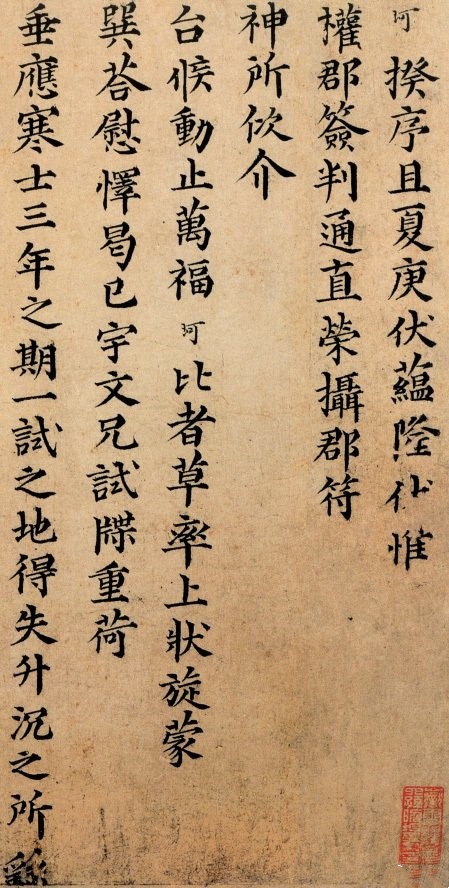 坷 揆序且夏庚伏蘊隆伏惟
權郡簽判通直榮攝郡符
神所佽介
台候動止萬福坷比者草率上狀旋蒙
巽荅慰懌曷已宇文兄試牒重荷
垂應寒士三年之期一試之地得失升沉之所